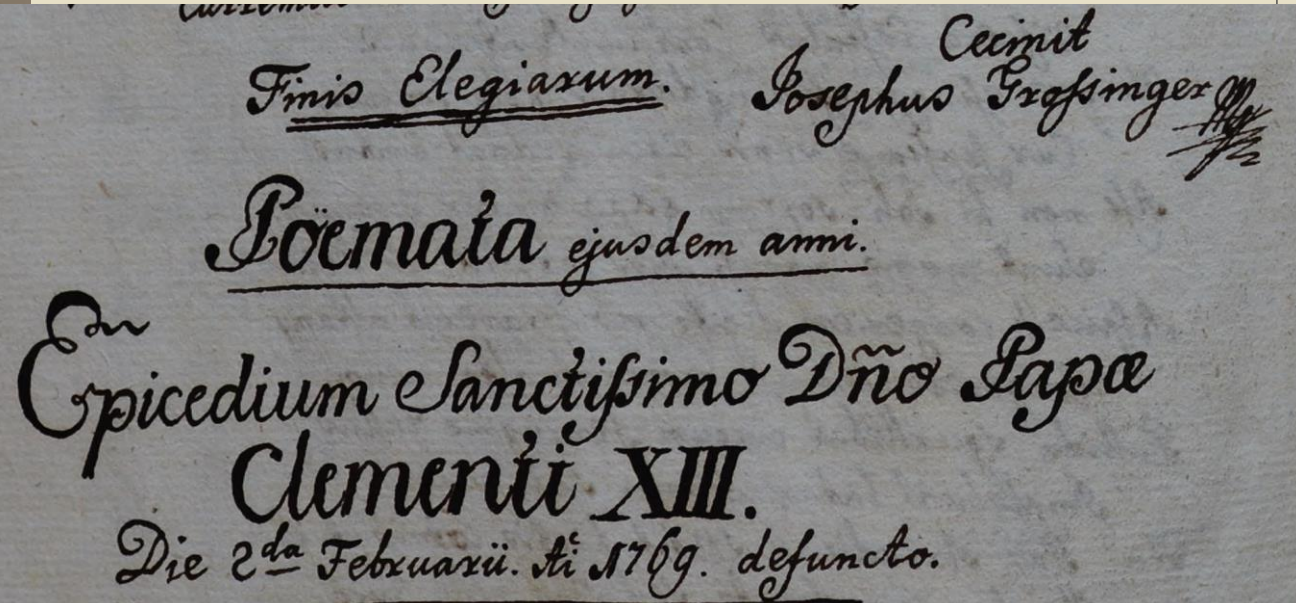 Cecinit
Finis Elegiarum. Josephus Groſsinger
Poëmata ejusdem anni.
Epicedium Sanctiſsimo Dño Papæ
Clementi XIII.
Die 2da Februarii. Ai 1769. defuncto.